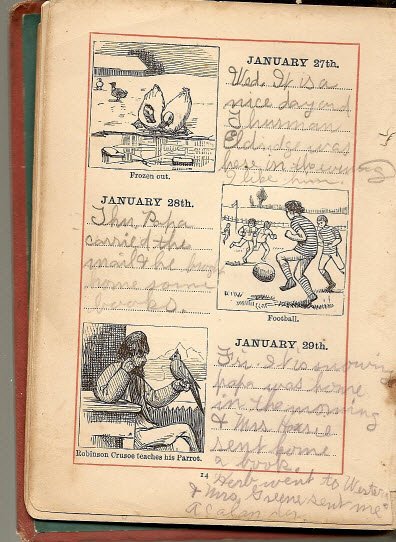 JANUARY 27th.
Wed. It is a
nice day and
Thurman
Eldridge was
here in the
I like him.
Frozen out.
JANUARY 28th.
Thu. Papa
carried the
mail & he
home some
books.
Football.
JANUARY 29th.
Fri It is
papa was home
in the morning
& Mrs
sent some
a book.
Robinson Crusoe teaches his Parrot.
14
went to
& Mrs. Greene sent me
a